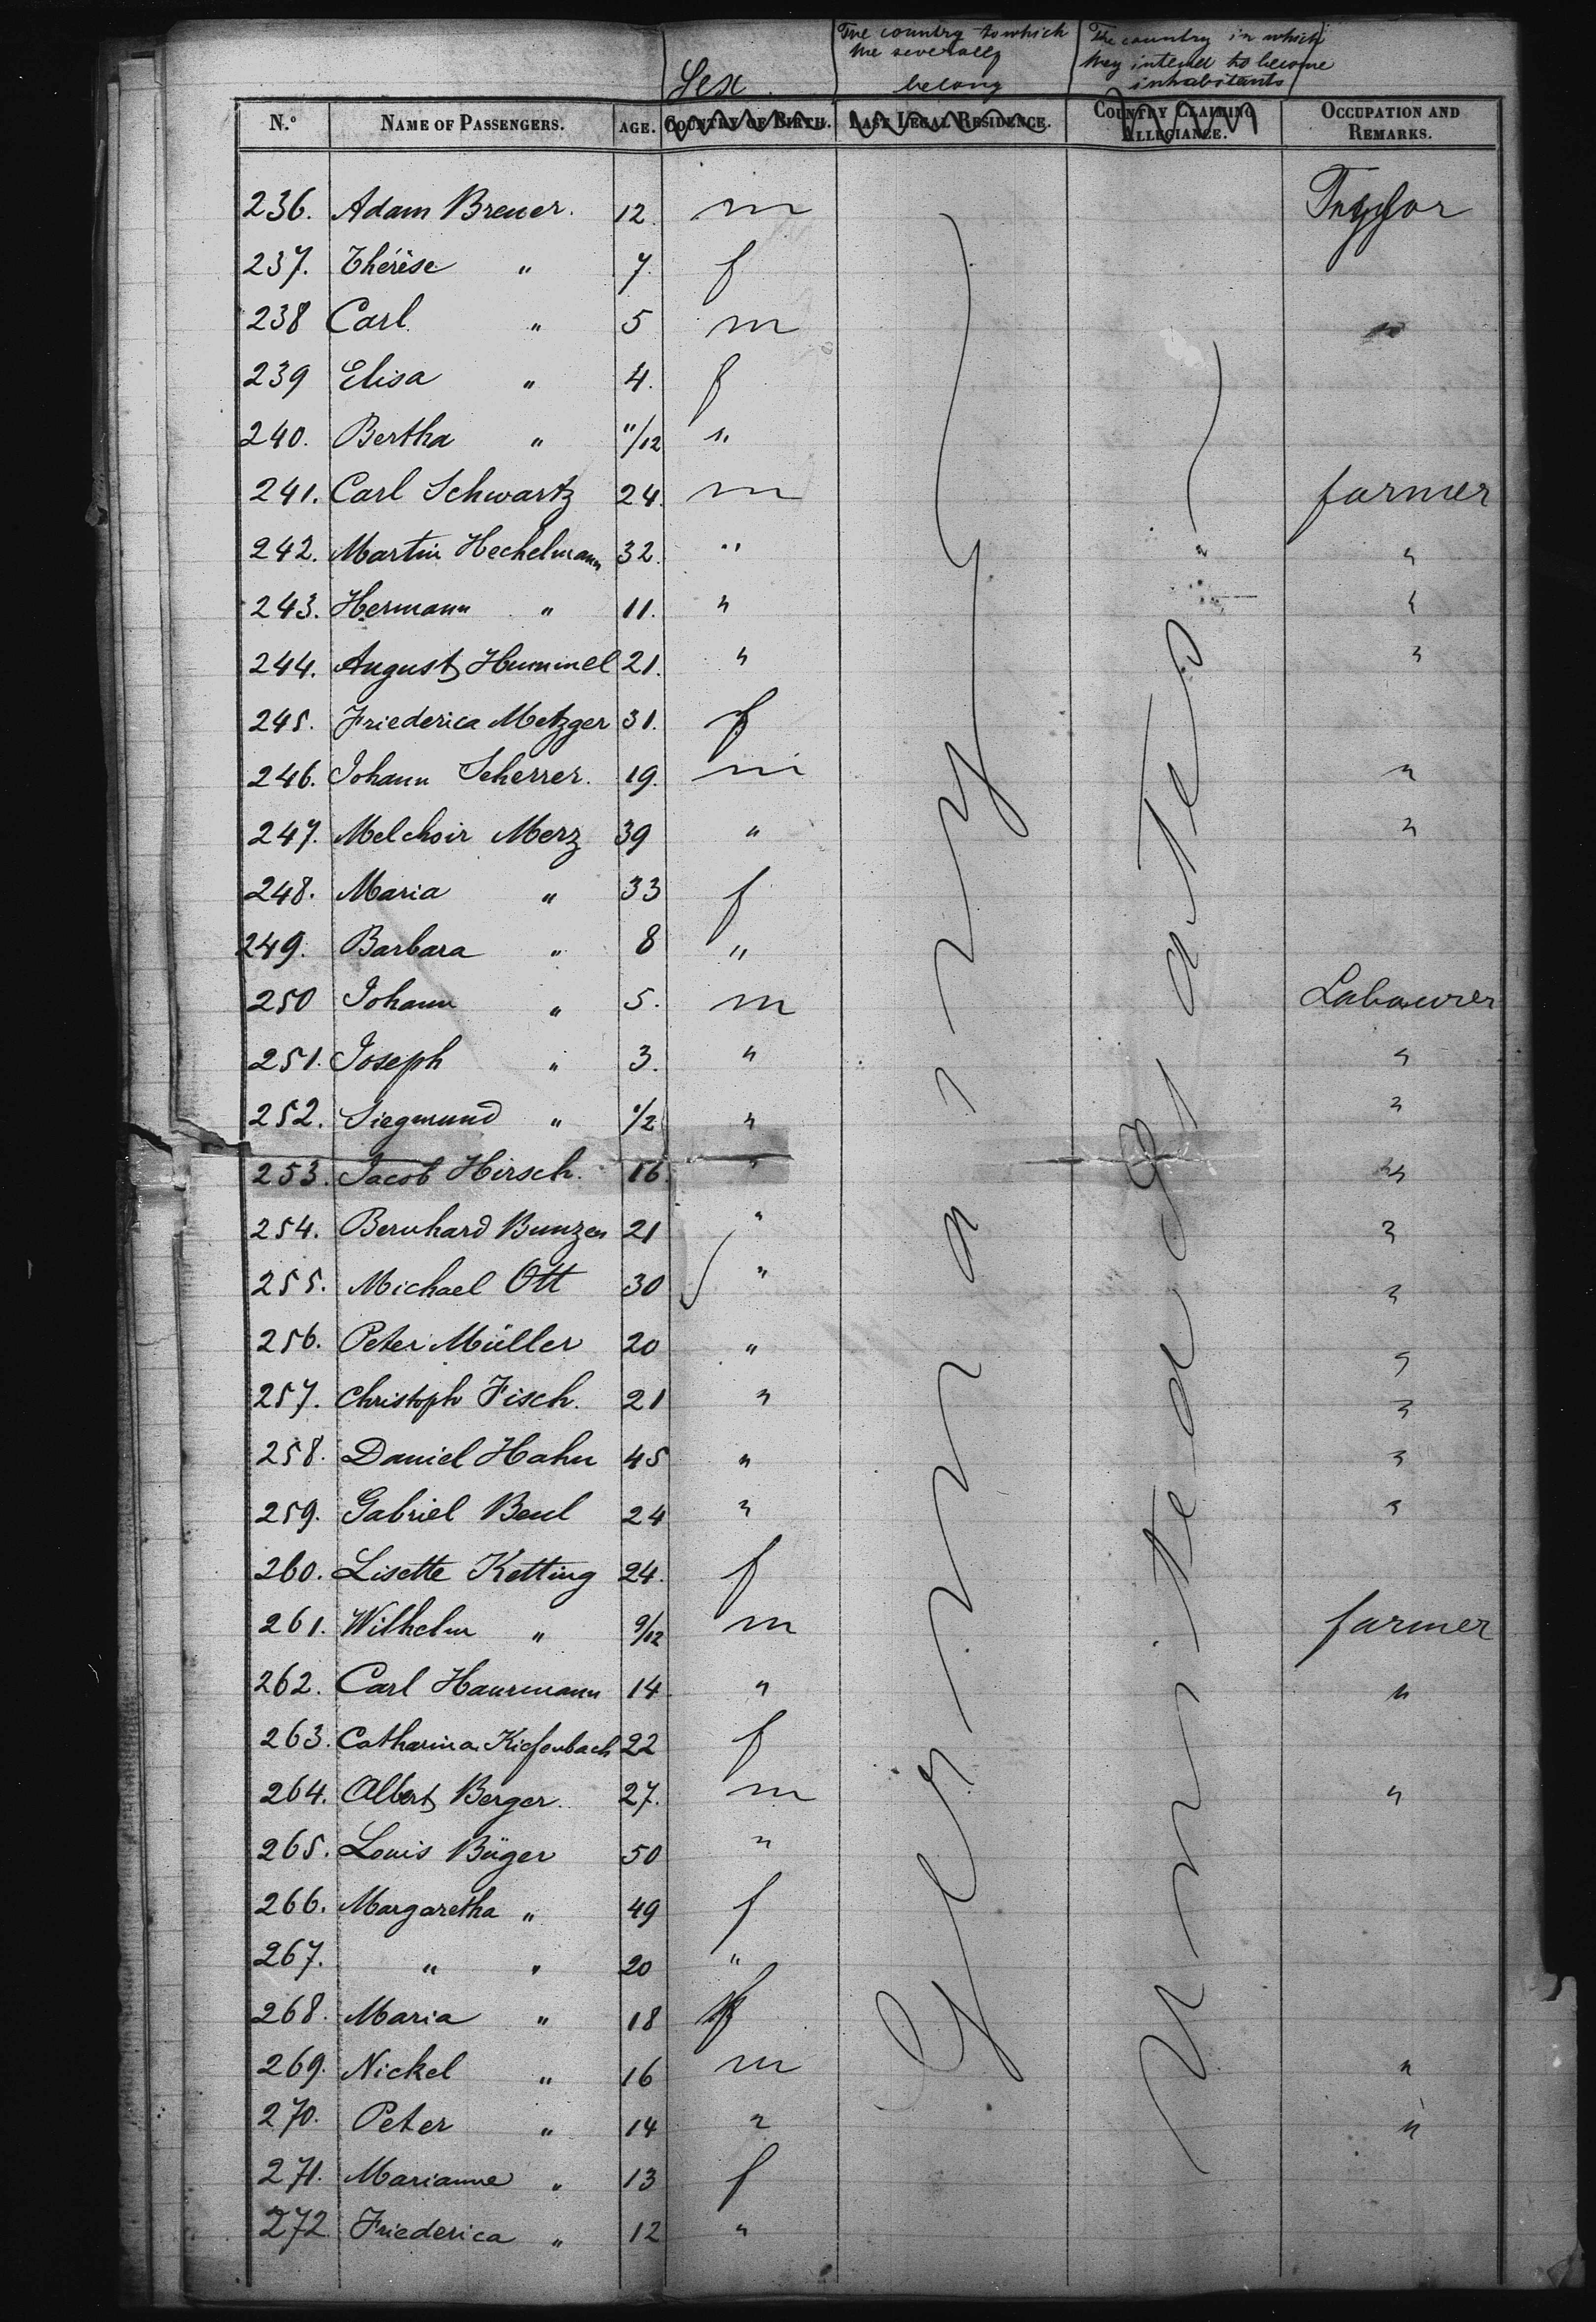 Sex.
The country to which
the severally
belong
The country in which
they intend to become
inhabitants
N.º NAME OF PASSENGERS. AGE. COUNTRY OF BIRTH. LAST LEGAL RESIDENCE. COUNTRY CLAIMING ALLEGIANCE. OCCUPATION AND REMARKS.
236. Adam Breuer. 12. m
237. Thérèse " 7. f
238 Carl " 5 m "
239 Elisa " 4. f
240. Bertha " 11/12 "
241. Carl Schwartz 24. m farmer
242. Martin Hechelmann 32. " "
243. Hermann " 11. " "
244. August Hummel 21. " "
245. Friederica Metzger 31. f
246. Johann Scherrer. 19. m "
247. Melchoir Merz 39 " "
248. Maria " 33 f
249. Barbara " 8 "
250 Johann " 5. m Labourer
251. Joseph " 3. " "
252. Siegmund " 1/2 " "
253. Jacob Hirsch. 16. " "
254. Bernhard Bunzen 21 " "
255. Michael Ott 30 " "
256. Peter Müller 20 " "
257. Christoph Fisch. 21 " "
258. Daniel Hahn 45 " "
259. Gabriel Beul 24 " "
260. Lisette Ketting 24. f
261. Wilhelm " 9/12 m farmer
262. Carl Haurmann 14. " "
263. Catharina Kiefenbach 22 f
264. Albert Berger. 27. m "
265. Louis Büger 50 "
266. Margaretha " 49 f
267. " " 20 "
268. Maria " 18 f
269. Nickel " 16 m "
270. Peter " 14 " "
271. Marianne " 13 f
272. Friederica " 12 "
Germany
United States